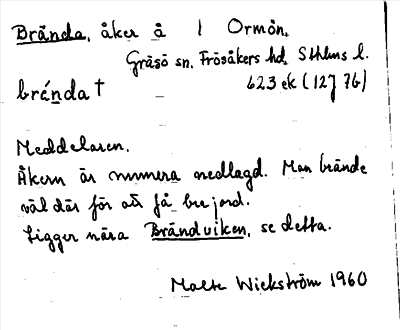 Brända, åker å l Ormön.
Gräsö sn, Frösåkers hd, Sthlms l.
brénda † 623 ek (12J 7b)
Meddelaren.
Åkern är numera nedlagd. Man brände
väl där för att få ber jord.
Ligger nära Brändviken, se detta.
Malte Wickström 1960